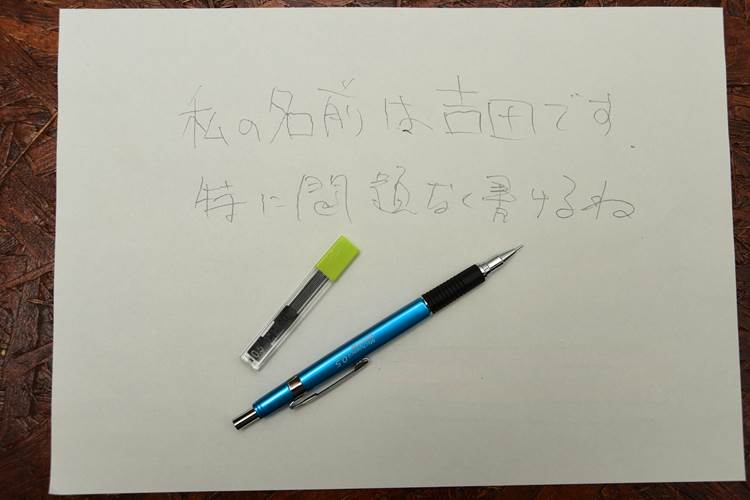 私の名前は吉田です
特に問題なく書けるね